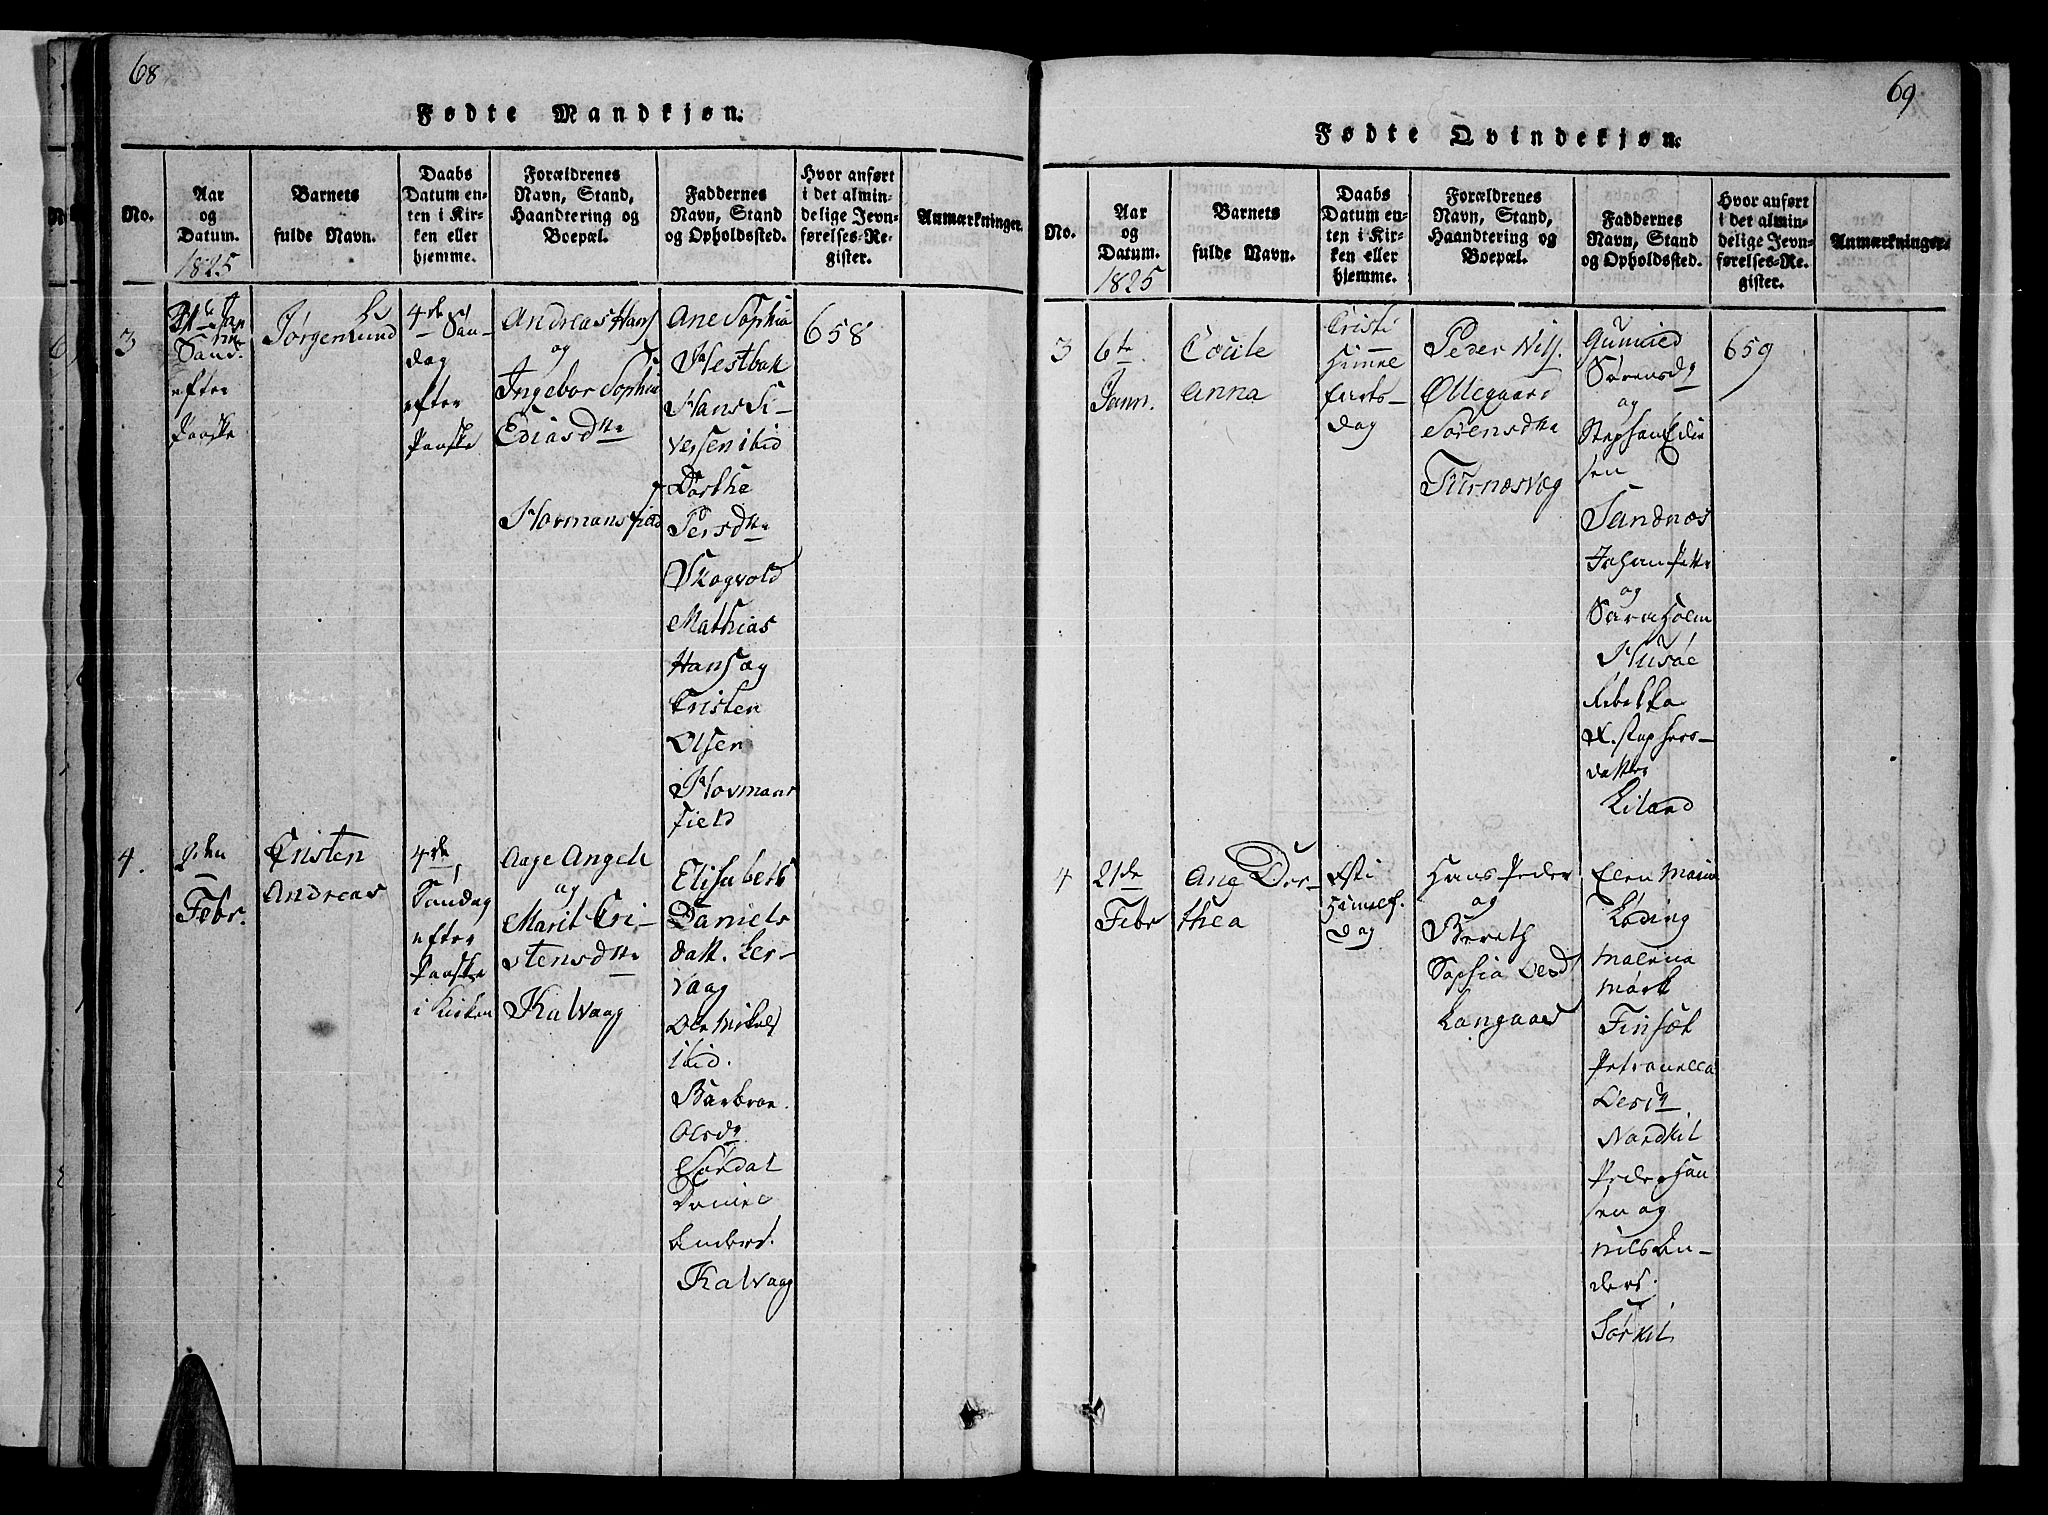 68
Fødte Mandkjøn.
No.
Aar
og
Datum.
1825
Barnets
fulde Navn.
Daabs
Datum en-
ten i Kir-
ken eller
hjemme.
Forældrenes
Navn, Stand,
Haandtering og
Boepæl.
Faddernes
Navn, Stand
og Opholdssted.
Hvor anført
i det almin-
delige Jevn-
førelses-Re-
gister.
Anmærkninger.
3
efter
Paaske
Jørgen Lund
4de Søn-
dag
efter
Paaske
Andreas Hans
og
Ingebor Sophia
Ediasdtr
Hovmansfield
Ane Sophia
Hestbak
Hans Si-
versen ibid
Dorthe
Persdtr
Skogvold
Mathias
Hans og
Cristen
Olsen
Hovmans
field
658
4.
Febr.
Cristen
Andreas
4de
Søndag
efter
Paaske
i Kirken
Aage Angel
og
Marit Cri-
stensdtr
Kalvaag
Elisabeth
Daniels
datt. Ler-
vaag
Ole Mikels
ibid.
Barbroe
Olsdtr
Sørdal
Daniel
Anders.
Kalvaag
69
Fødte Qvindekjøn.
No.
Aar
og
Datum.
1825
Barnets
fulde Navn.
Daabs
Datum en-
ten i Kir-
ken eller
hjemme.
Forældrenes
Navn, Stand,
Haandtering og
Boepæl.
Faddernes
Navn, Stand
og Opholdssted.
Hvor anført
i det almin-
delige Jevn-
førelses-Re-
gister.
Anmærkninger.
3
6te
Jann.
Anna
Cristi
Himme
farts-
dag
Peder Nils.
Ollegaard
Sørensdtr
Furnesvæg
Sørensdtr
og
Stephan Edia
sen
Sandnæs
Johan Petter
og
Sara Holm
Husøe
Rebekka
Kristophers-
datter
Eiland
659
4
21de
Febr
Ane Dor-
thea
Cristi
Himelf.
dag
Hans Peder
og
Bereth
Sophia Olesd
Langaard
Elen Maria
Løding
Malena
Mørk
Finsæt
Petronella
Olesdtr
Nordkil
Peder Han
sen og
Nils An-
ders.
Sørkil